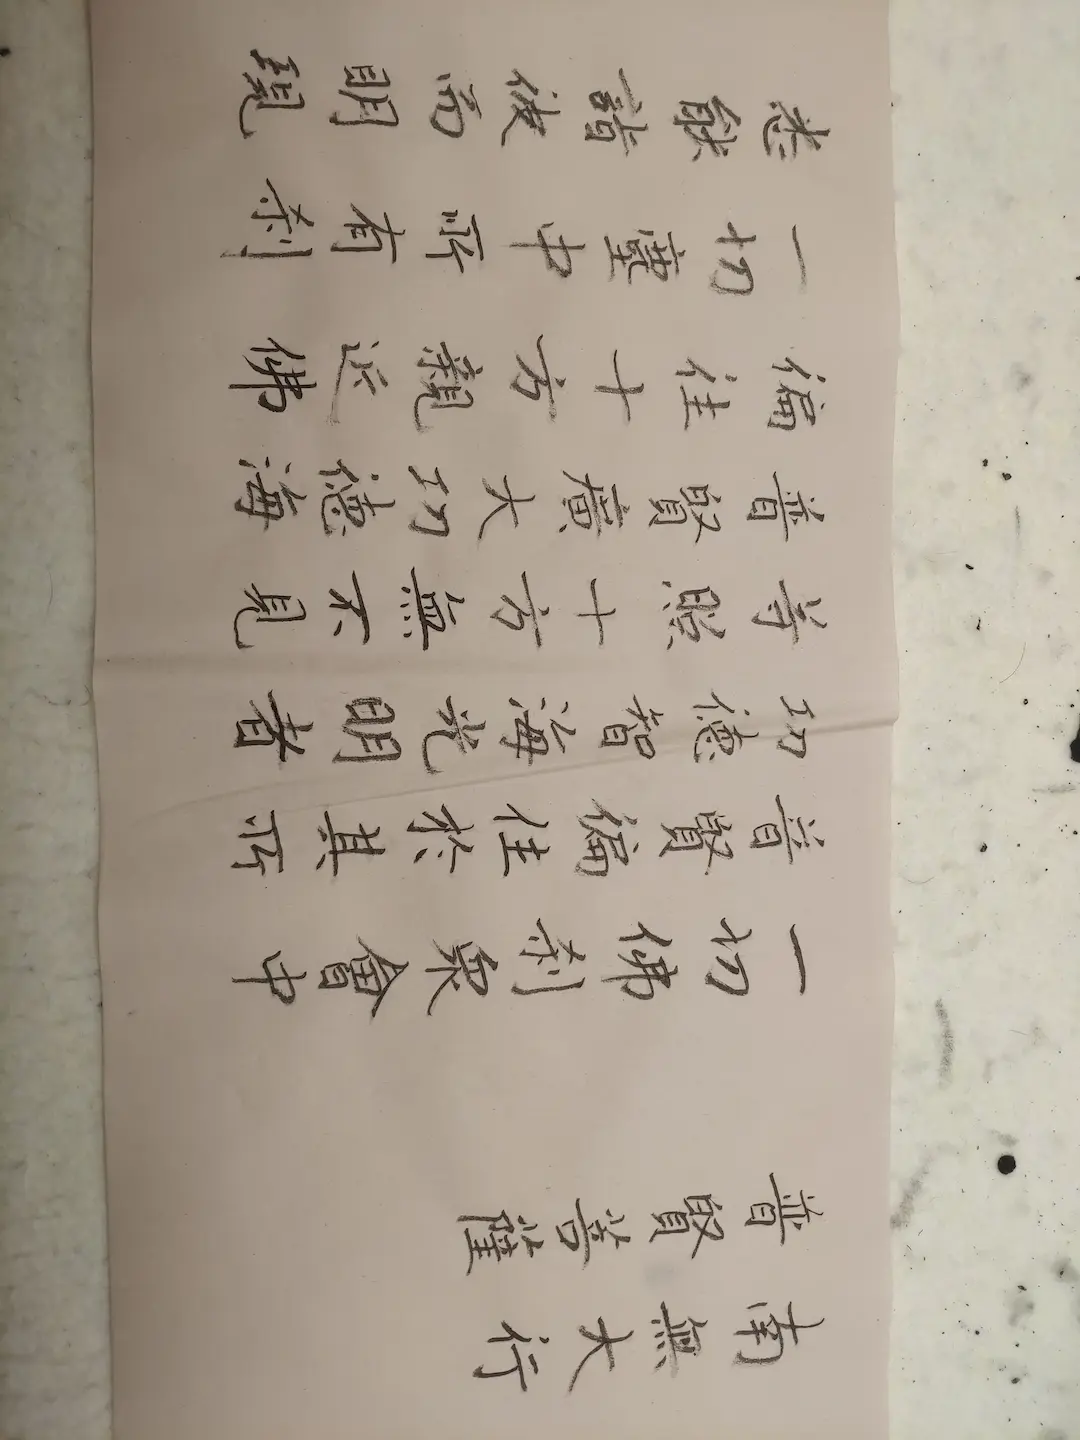 南無大行
普賢菩薩
一切佛剎衆會中
普賢徧住於其所
功德智海光明者
等照十方無不見
普賢廣大功德海
徧往十方親近佛
一切塵中所有剎
悉能詣彼而明現